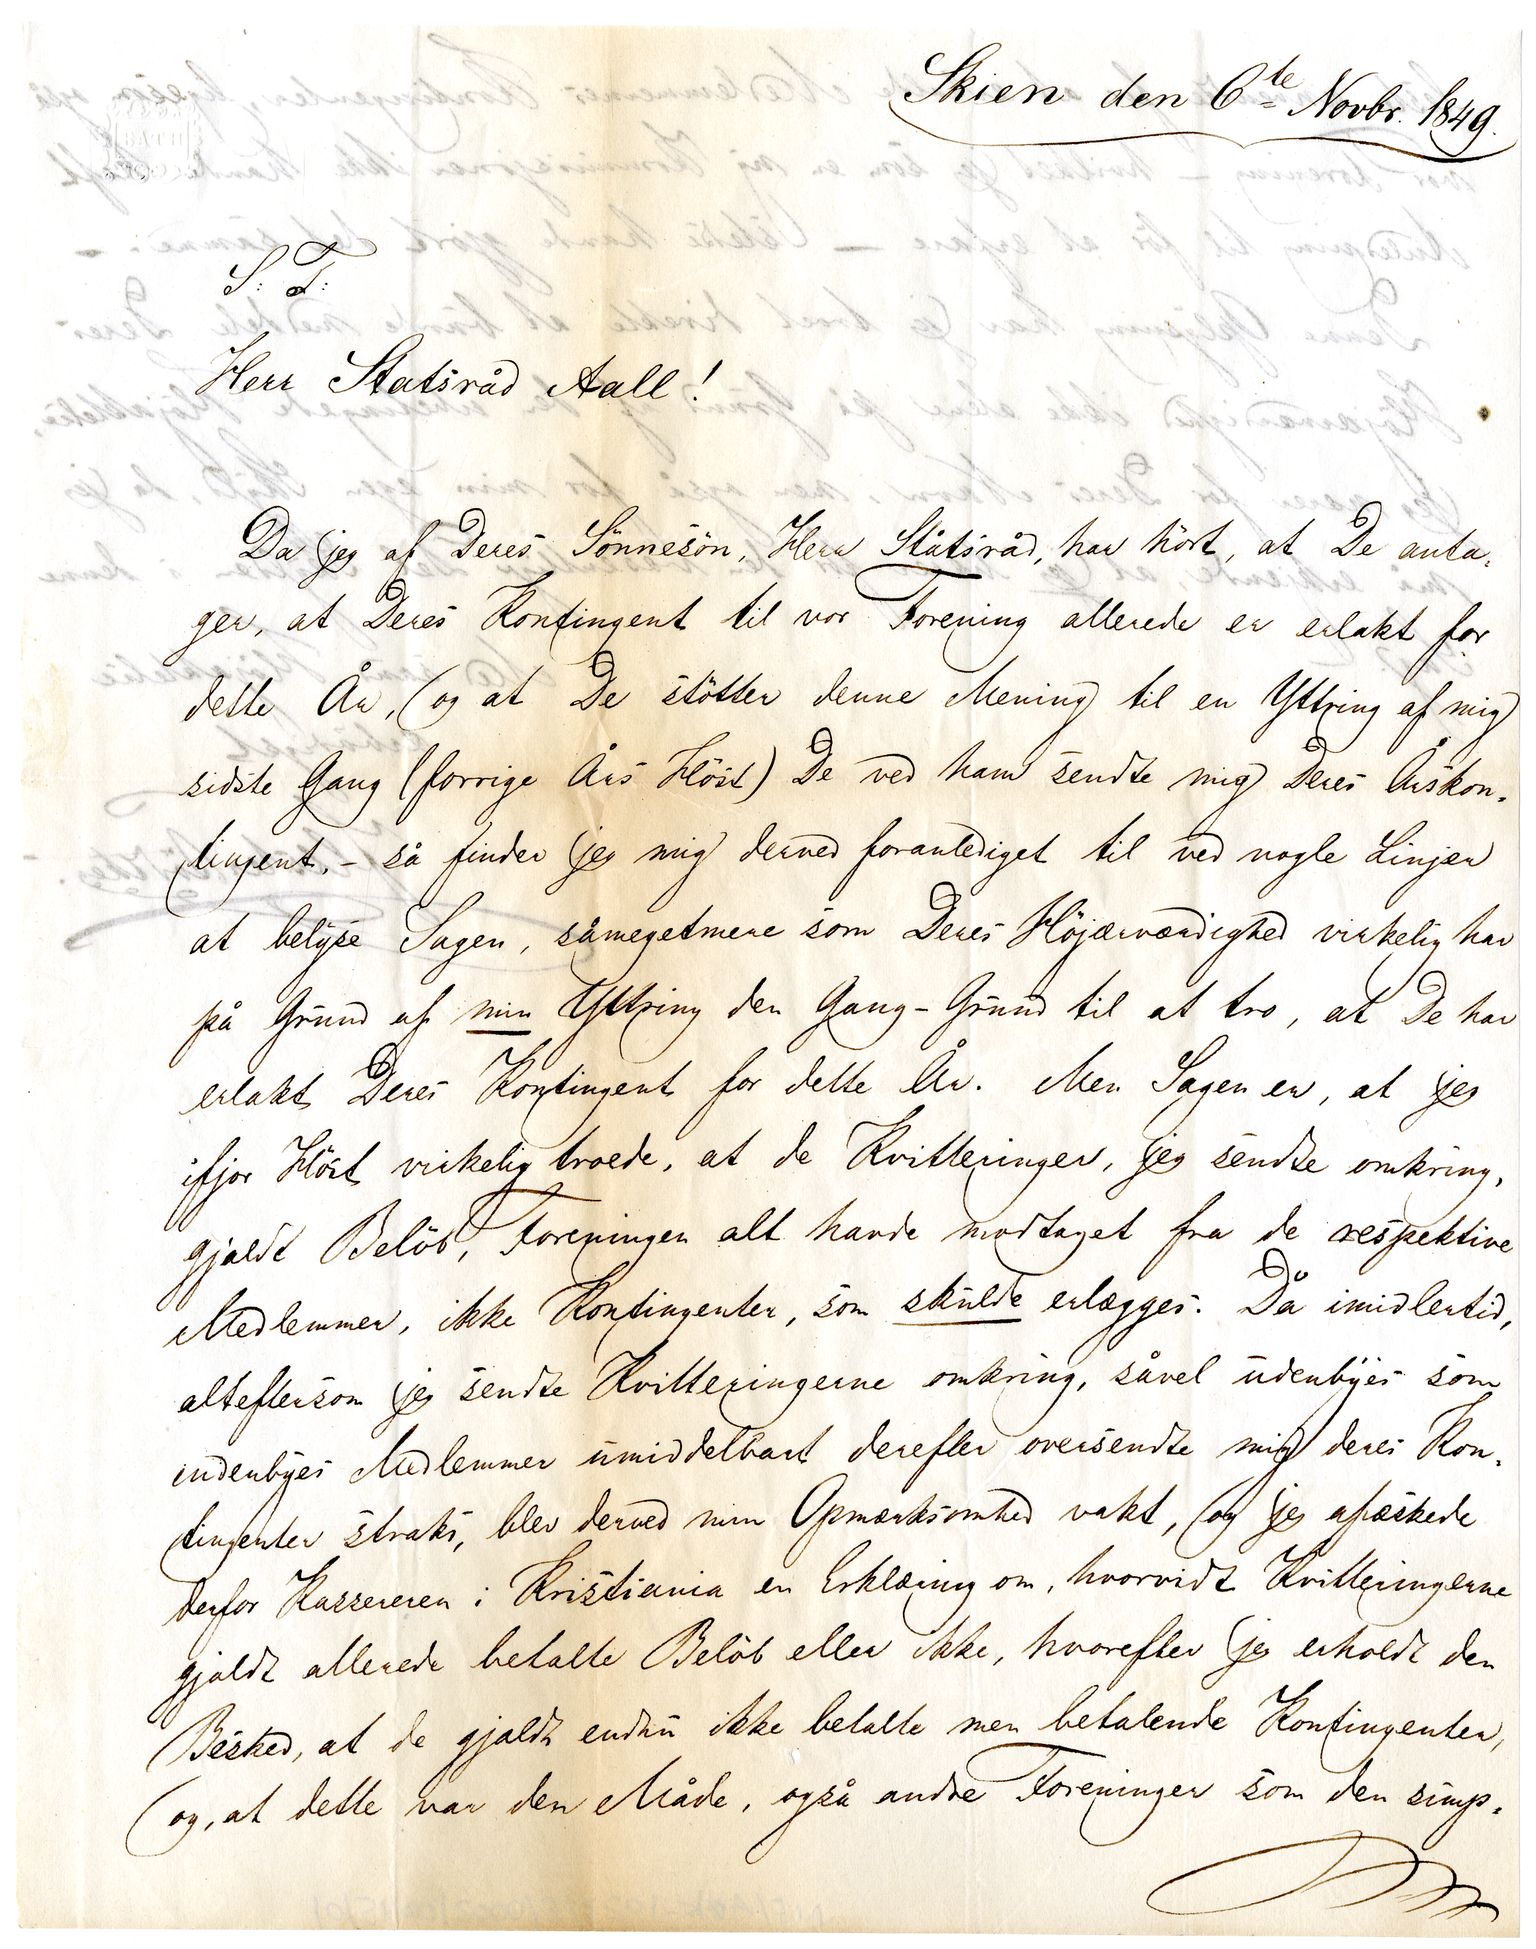 Skien den 6te Novbr. 1849.
S: T:
Herr Statsråd Aall!
Da jeg af Deres Sönnesön, Herr Statsråd, har hört, at De anta-
ger, at Deres Kontingent til vor Forening allerede er erlakt for
dette År, og at De stötter denne Mening til en Yttring af mig
sidste Gang (forrige Års Höst) De ved ham sendte mig Deres Årskon-
tingent, – så finder jeg mig derved foranlediget til ved nogle Linjer
at belyse Sagen, såmegetmere som Deres Höjærværdighed virkelig har
på Grund af min Yttring den Gang – Grund til at tro, at De har
erlakt Deres Kontingent for dette År. Men Sagen er, at jeg
ifjor Höst virkelig troede, at de Kvitteringer, jeg sendte omkring,
gjaldt Belöb, Foreningen alt havde modtaget fra de respektive
Medlemmer, ikke Kontingenter, som skulde erlægges. Då imidlertid,
alteftersom jeg sendte Kvitteringerne omkring, såvel udenbyes som
indenbyes Medlemmer umiddelbart derefter oversendte mig deres Kon-
tingenter straks, blev derved min Opmærksomhed vakt, og jeg afæskede
derfor Kassereren i Kristiania en Erklæring om, hvorvidt Kvitteringerne
gjaldt allerede betalte Belöb eller ikke, hvorefter jeg erholdt den
Besked, at de gjaldt endnu ikke betalte men betalende Kontingenter,
og, at dette var den Måde, også andre Foreninger som den simp-